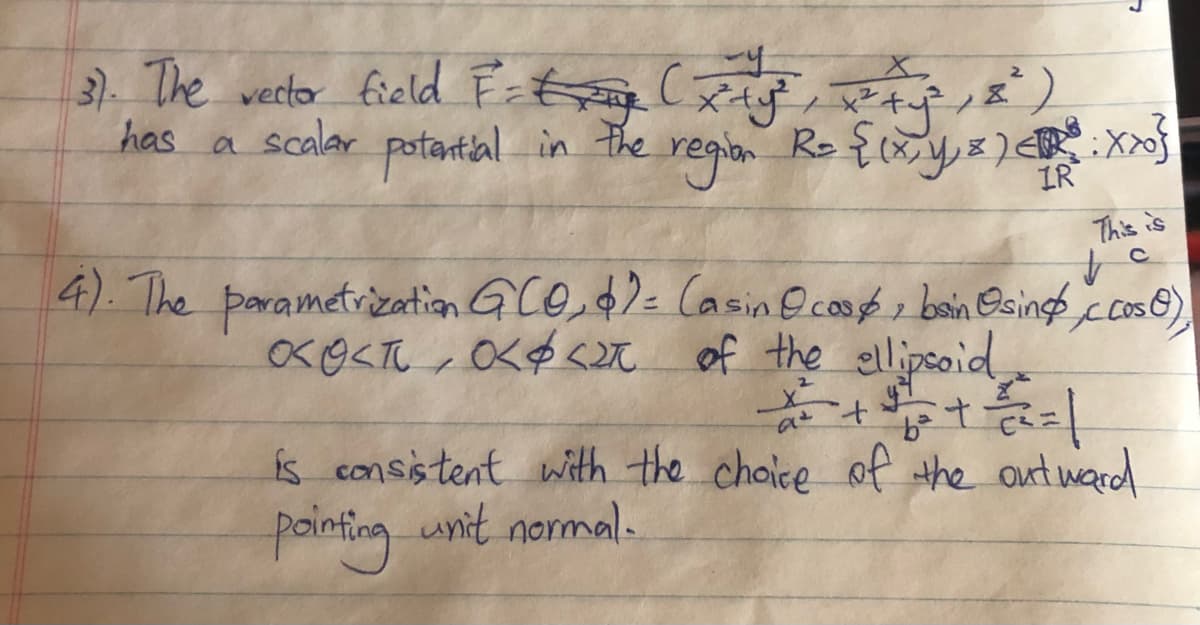 3). The vector field F⃗ = (-y/(x²+y²), x/(x²+y²), z²)
has a scalar potential in the region R = {(x,y,z) ∈ IR³ : x>0}
This is
↓ c
4). The parametrization G(θ,ϕ) = (a sin θ cos ϕ, b sin θ sin ϕ, c cos θ),
0<θ<π, 0<ϕ<2π of the ellipsoid
x²/a² + y²/b² + z²/c² = 1
is consistent with the choice of the outward
pointing unit normal.